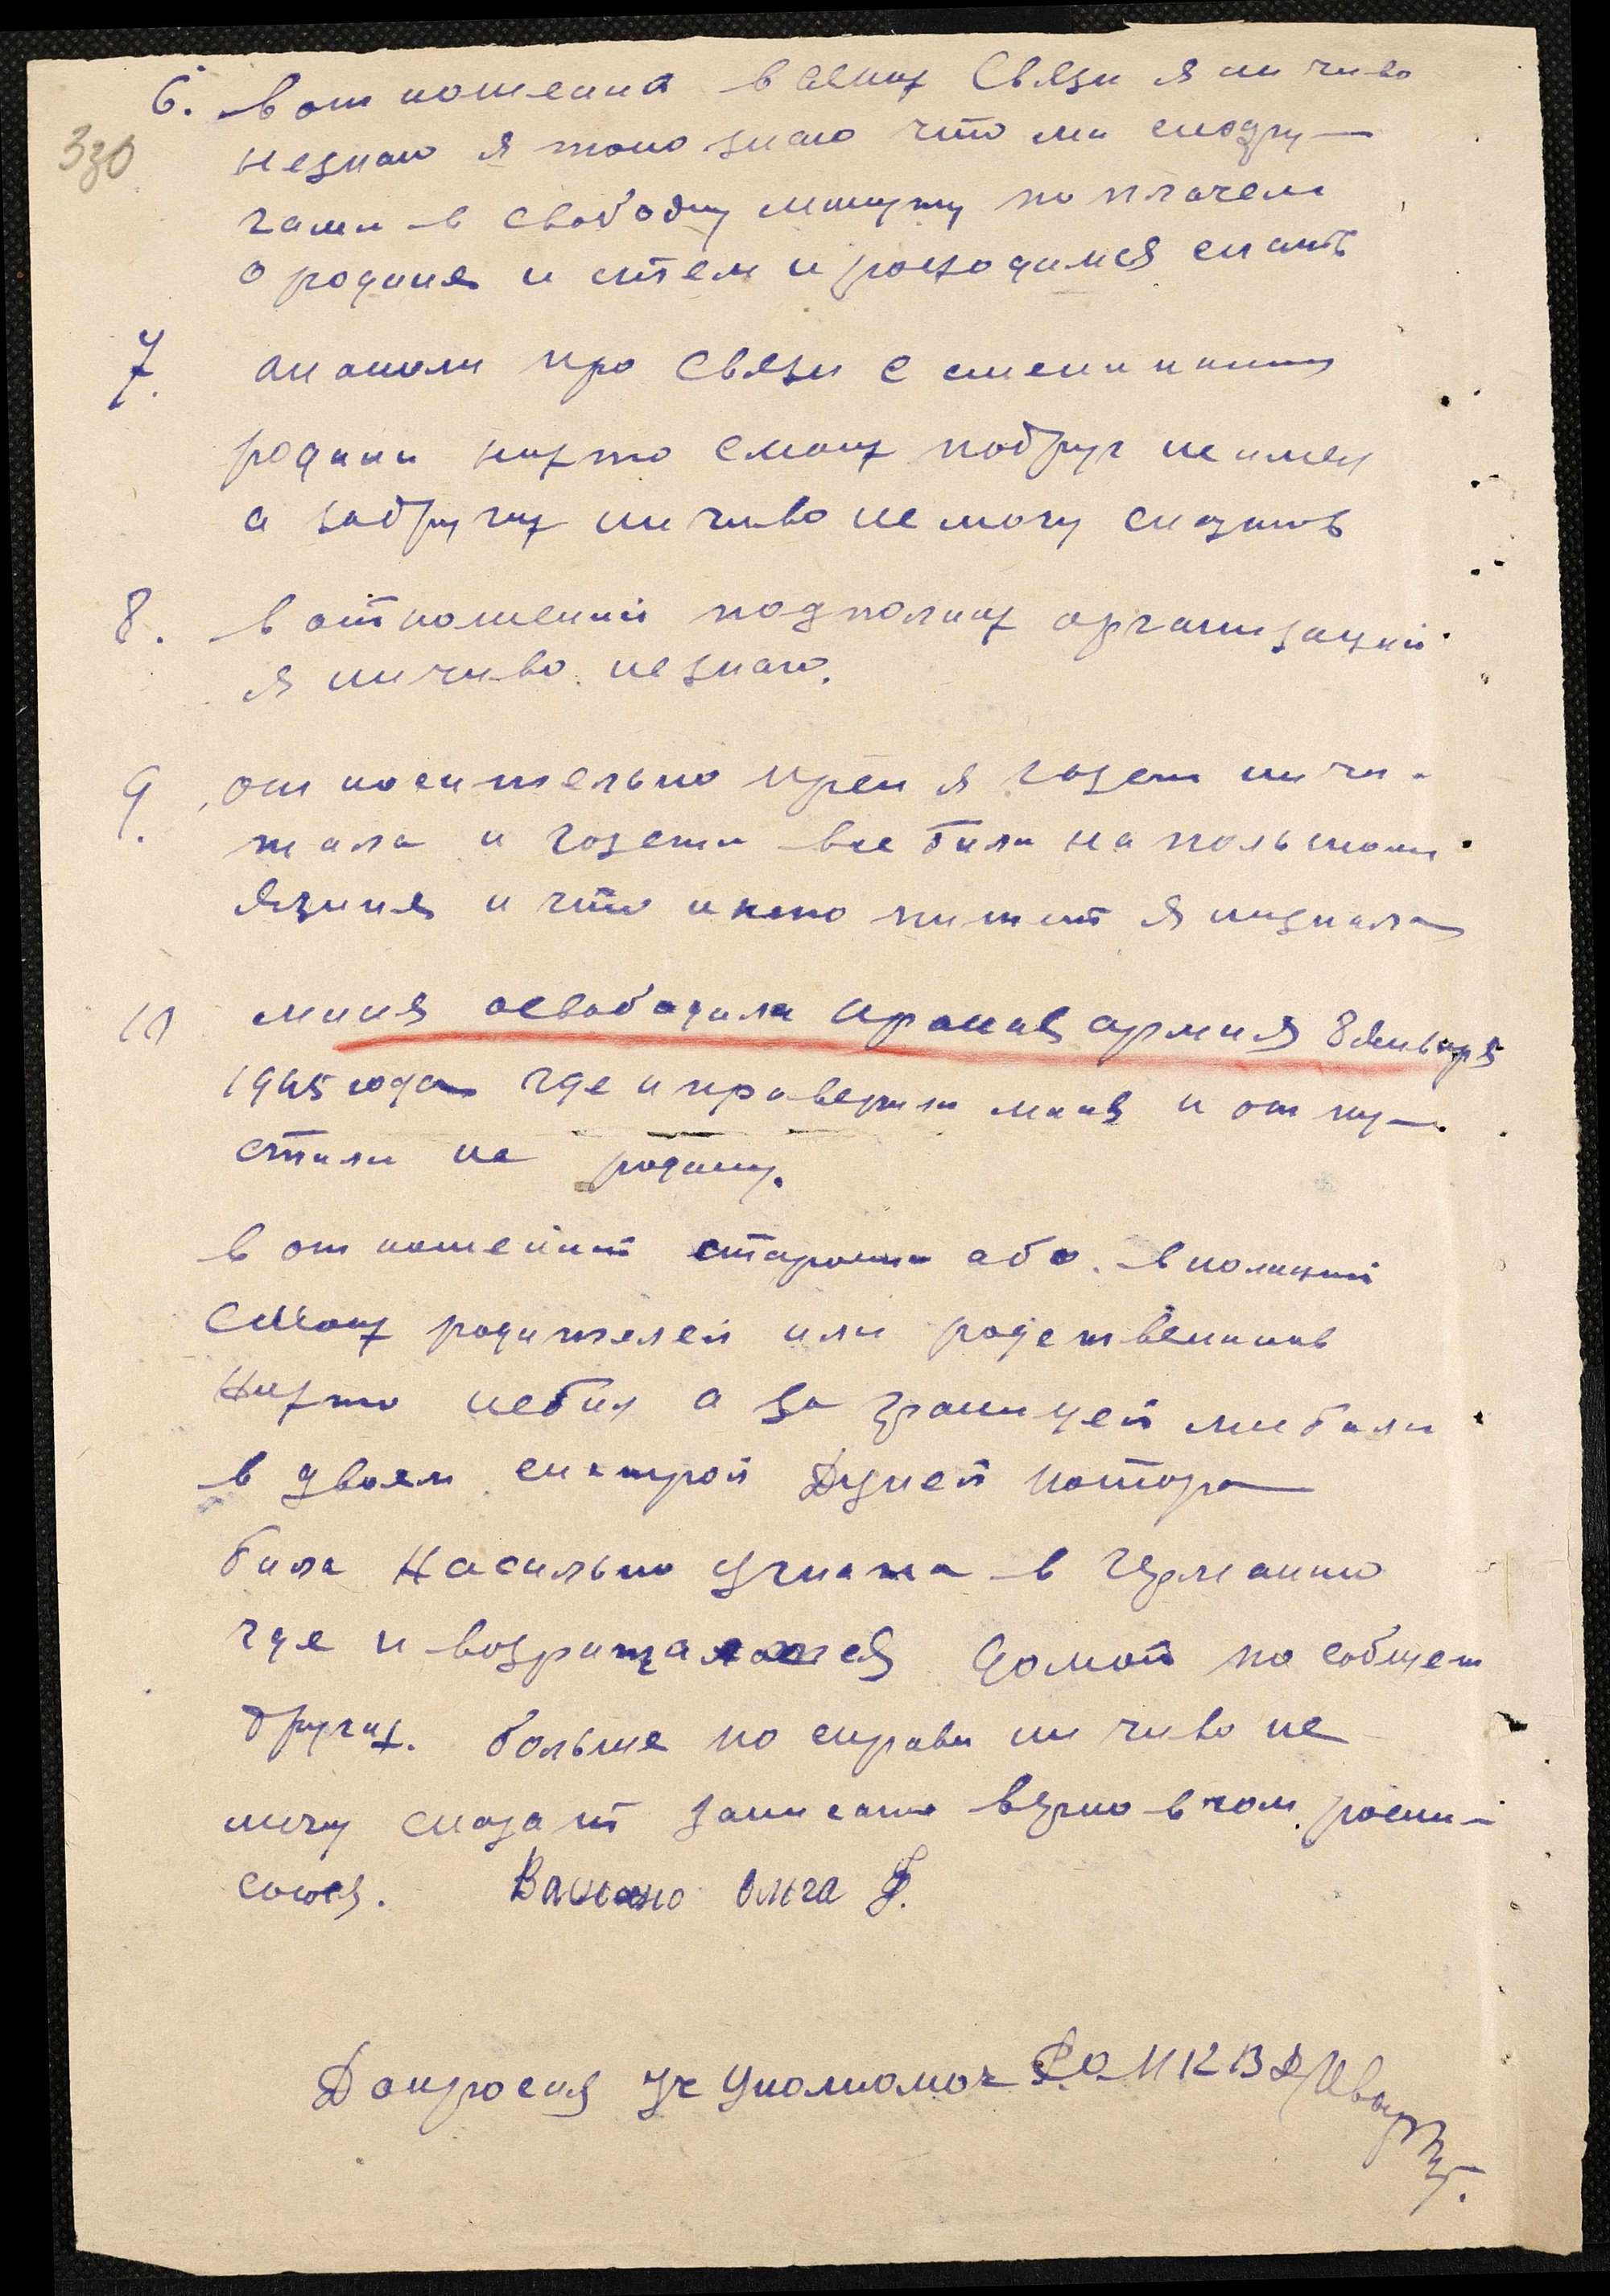 330
6. в отношения военых Связи я ни чиво
незнаю я токо знаю что ми сподру-
гами в свободну минуту по плачем
о родине и стем и росходимся спать
7. анаколи про Связи с
родини нихто смоих подруг неимел
а задругих ни чиво не могу сказать
8. в отношений подполних организаций
я ни чиво незнаю.
9. относительно преси я газет ни чи-
тала и газети все били на польском
язике и что икто пишит я низнала
10 миня освабодила красная армия 8 Января
1945 года где и праверили миня и от пу-
стили на родину.
в отношений старости або в полиций
смоих родителей или родственников
нихто небил а за границей ми били
в двоем систрой Дусей котора
била насильно угнана в германию
где и возращалася домой по собщет
других. больше по справи ни чиво не
могу сказат записано верно в чом роспи-
сююся. Ольга Ф.
Допросил Уч Уполномоч Р.О. НКВД